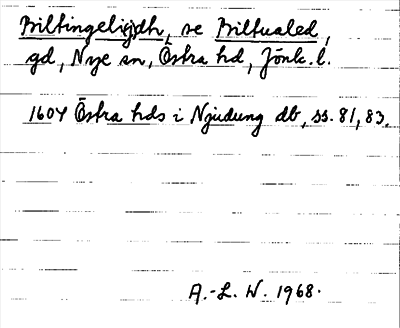 Briltingelijdh, se Briltualed,
gd, Nye sn, Östra hd, Jönk. l.
1604 Östra hds i Njudung db, ss. 81, 83.
A.-L. W. 1968.